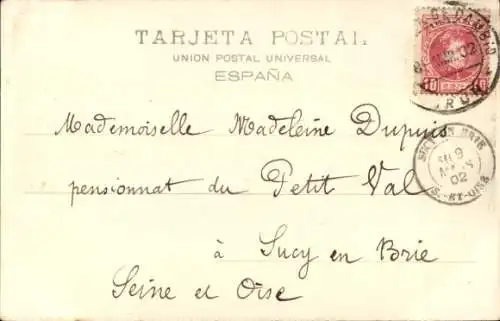 TARJETA POSTAL
UNION POSTAL UNIVERSAL
ESPAÑA
02
10
IRUN
Mademoiselle Madeleine Dupuis
pensionnat du Petit Val
à Sucy en Brie
Seine et Oise
SUCY EN BRIE
9
MARS
02
S.-ET-OISE